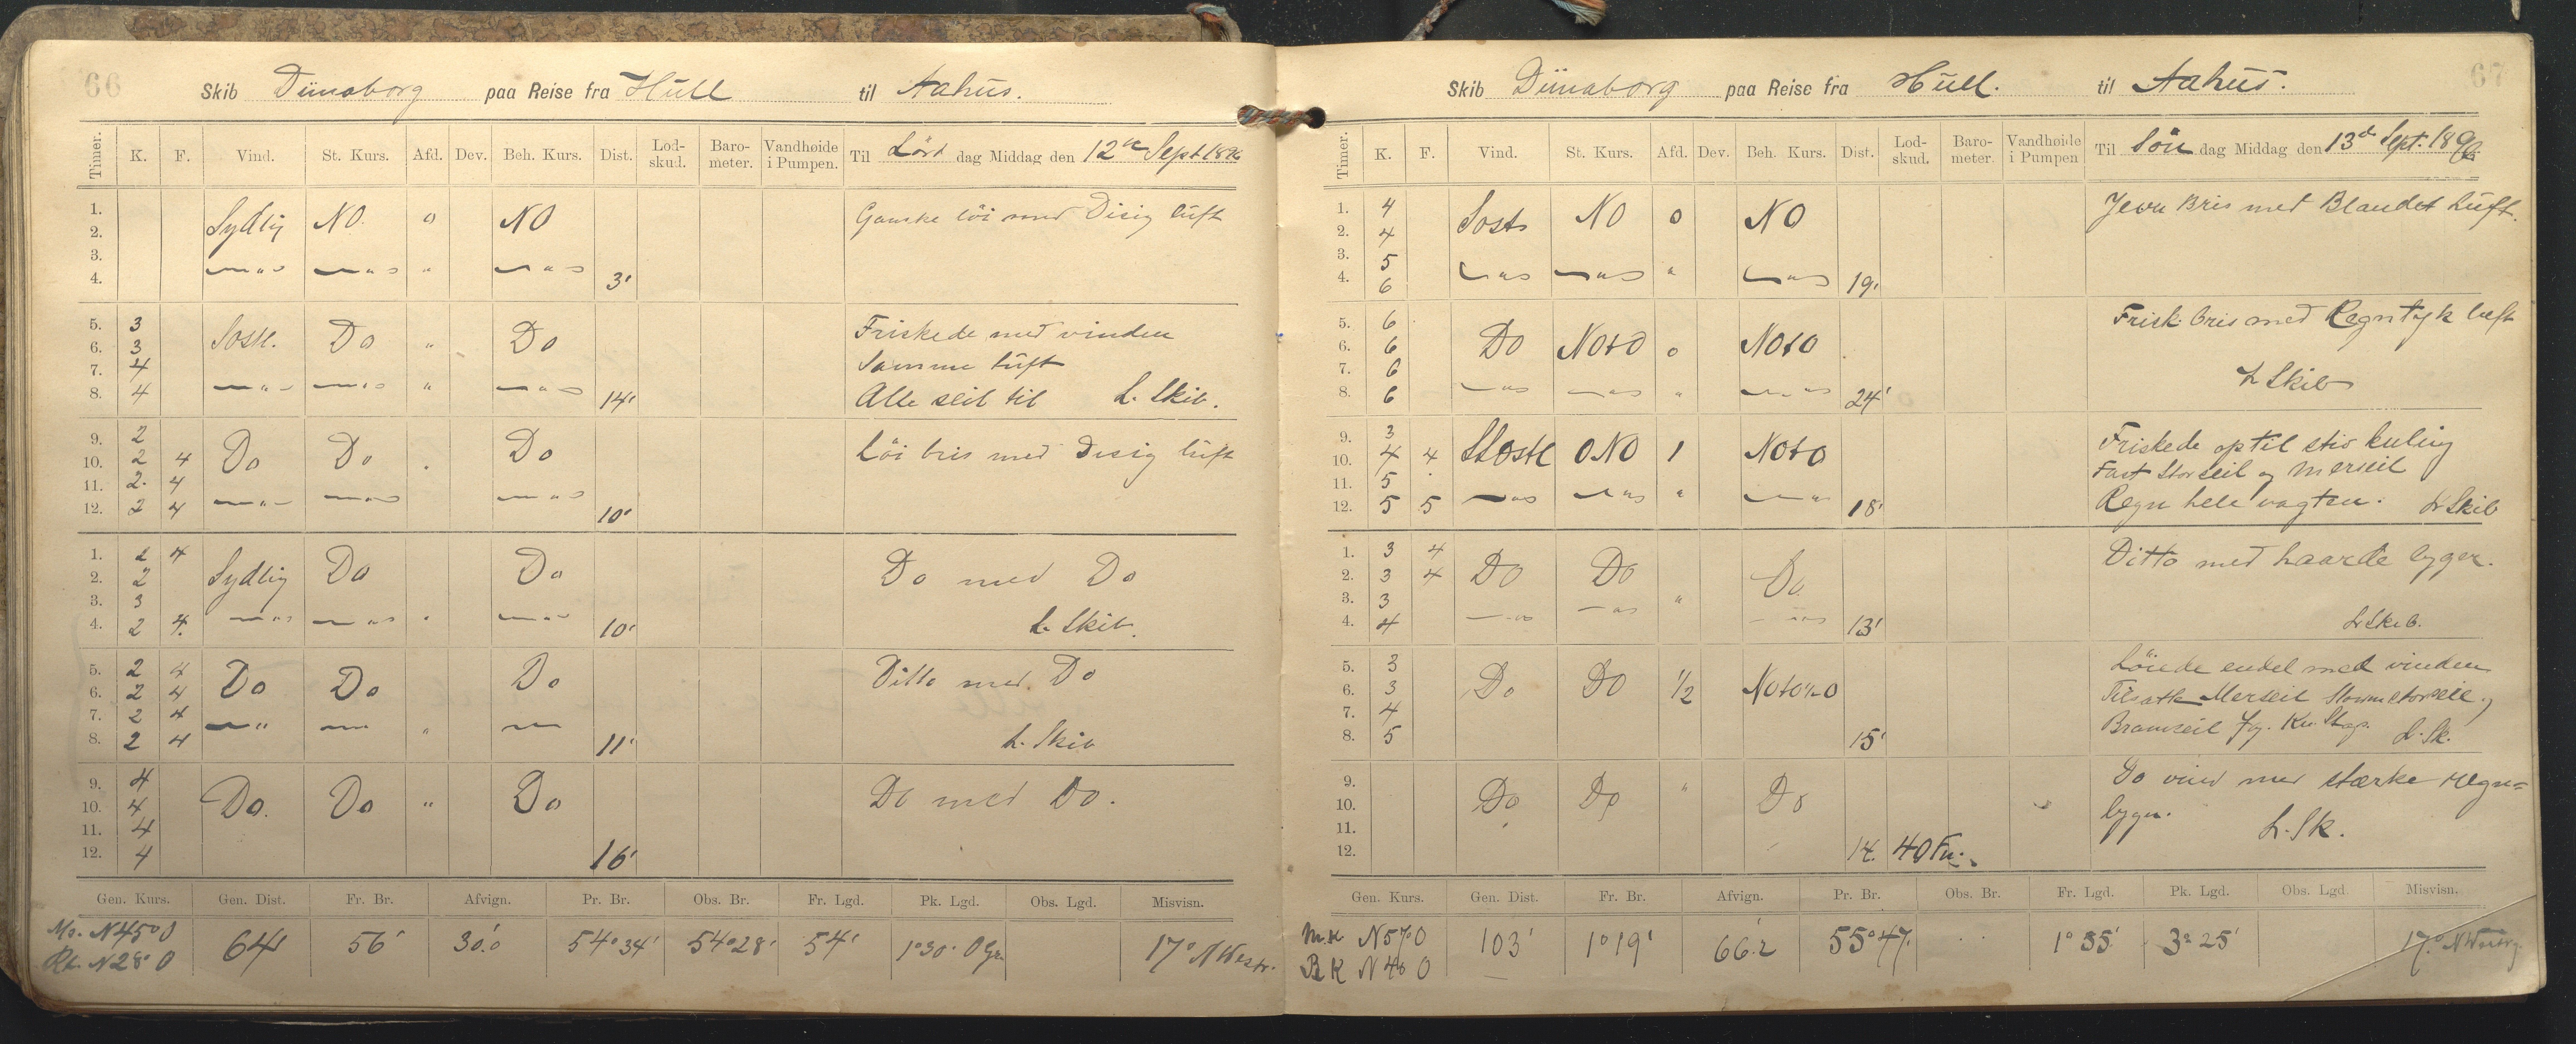 66
Skib Dünaborg paa Reise fra Hull til Aahus.
Timer. K. F. Vind. St. Kurs. Afd. Dev. Beh. Kurs. Dist. Lod-skud. Baro-meter. Vandhøide i Pumpen. Til Lörd dag Middag den 12te Sept 1896
1. Sydlig NO. 0 NO Ganske löi med Disig luft
2.
3.
4. 3'
5. 3 Sostl. Do " Do Friskede med vinden
6. 3 Samme luft
7. 4
8. 4 " 14' Alle seil til L. Skib.
9. 2 Do Do Do Löi bris med Disig luft
10. 2 4
11. 2 4
12. 2 4 10'
1. 2 4 Sydlig Do Do Do med Do
2. 2
3. 3
4. 2 4 10' L. Skib.
5. 2 4 Do Do Do Ditto med Do
6. 2 4
7. 2 4
8. 2 4 11' L. Skib
9. 4 Do. Do " Do Do med Do.
10. 4
11. 4
12. 4 16'
Gen. Kurs. Gen. Dist. Fr. Br. Afvign. Pr. Br. Obs. Br. Fr. Lgd. Pk. Lgd. Obs. Lgd. Misvisn.
N 45° O 64' 56' 30.'0 54° 34' 54° 28' 54' 1° 30' O Gr. 17° NWestr.
N 28° O
67
Skib Dünaborg paa Reise fra Hull. til Aahus.
Timer. K. F. Vind. St. Kurs. Afd. Dev. Beh. Kurs. Dist. Lod-skud. Baro-meter. Vandhøide i Pumpen Til Sön dag Middag den 13de Sept. 1896
1. 4 Sost NO 0 NO Jevn Bris med Blandet Luft.
2. 4
3. 5
4. 6 " 19'
5. 6 Do NOtO 0 NOtO Frisk bris med Regntyk luft
6. 6
7. 6
8. 6 " 24' L Skib
9. 3 SSostl ONO 1 NOtO Friskede op til stiv kuling
10. 4 4 Fast Storseil og Merseil
11. 5
12. 5 5 " 18' Regn hele vagten. L Skib
1. 3 4 Do Do Do Ditto med haarde byger.
2. 3 4
3. 3 "
4. 4 13' L Skib.
5. 3 Do Do 1/2 NOtO1/2O Löiede endel med vinden
6. 3 Tilsatte Merseil Stormstorseil og
7. 4 Bramseil
8. 5 15' L. Sk.
9. Do Do " Do Do vind med stærke regn=
10. byger.
11. L. Sk.
12. 14. 40 Fv.
Gen. Kurs. Gen. Dist. Fr. Br. Afvign. Pr. Br. Obs. Br. Fr. Lgd. Pk. Lgd. Obs. Lgd. Misvisn.
M.K N 57° O 103' 1° 19' 66.'2 55° 47' 1° 55' 3° 25' 17°
R K N 40 O